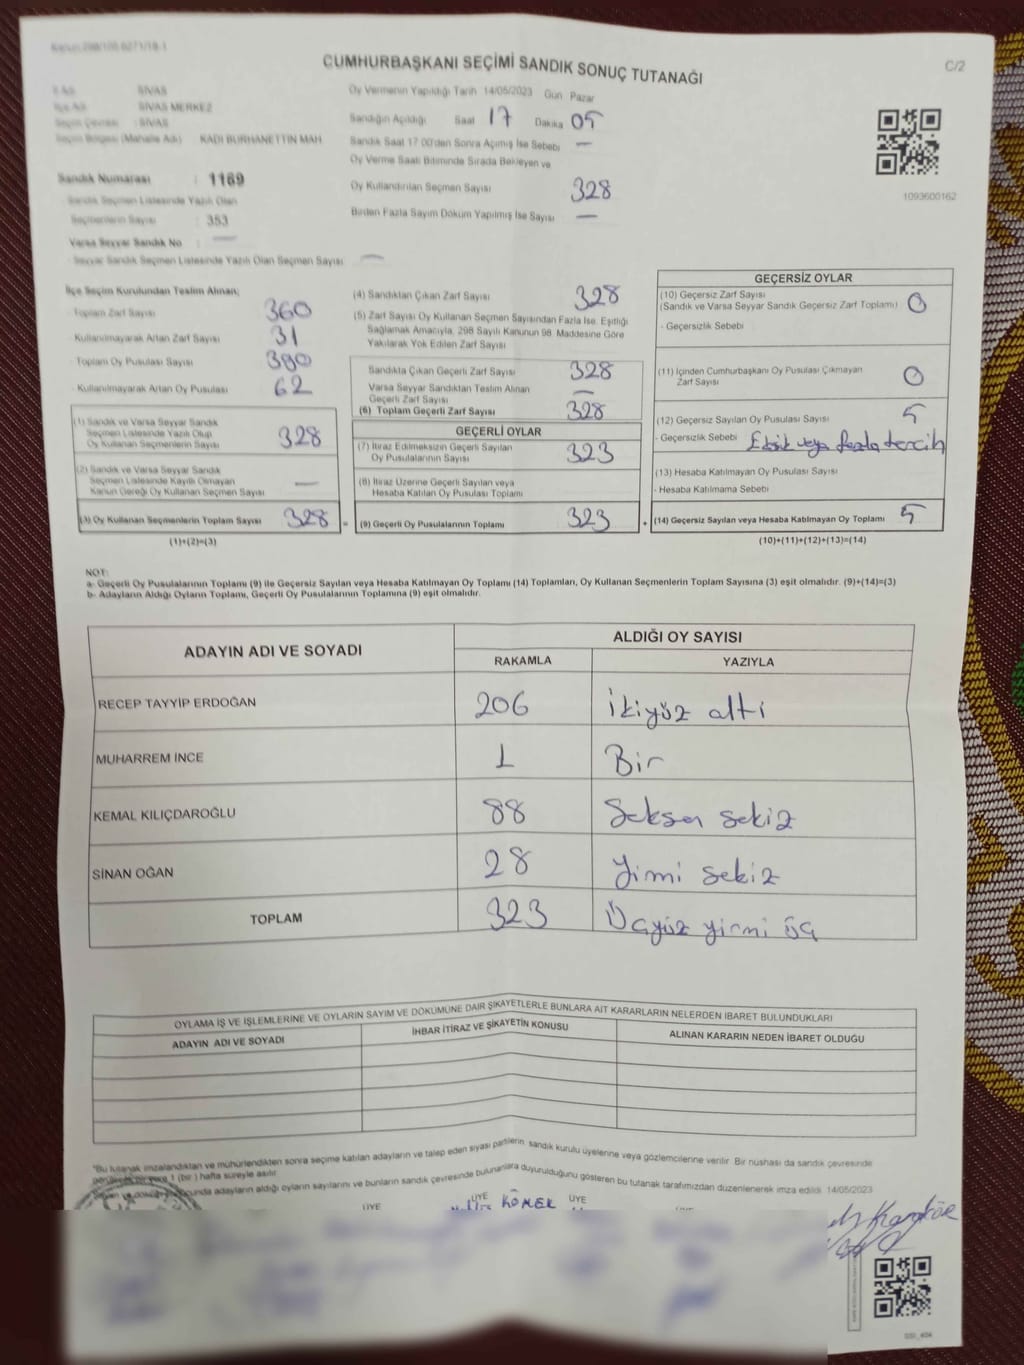 Kanun:298/105,6271/18-1
CUMHURBAŞKANI SEÇİMİ SANDIK SONUÇ TUTANAĞI
C/2
İl Adı : SİVAS
İlçe Adı : SİVAS MERKEZ
Seçim Çevresi : SİVAS
Seçim Bölgesi (Mahalle Adı) : KADI BURHANETTİN MAH
Sandık Numarası : 1169
Sandık Seçmen Listesinde Yazılı Olan
Seçmenlerin Sayısı : 353
Varsa Seyyar Sandık No : —
Seyyar Sandık Seçmen Listesinde Yazılı Olan Seçmen Sayısı : —
Oy Vermenin Yapıldığı Tarih 14/05/2023 Gün Pazar
Sandığın Açıldığı Saat 17 Dakika 05
Sandık Saat 17.00'den Sonra Açımış İse Sebebi —
Oy Verme Saati Bitiminde Sırada Bekleyen ve
Oy Kullandırılan Seçmen Sayısı 328
Birden Fazla Sayım Döküm Yapılmış İse Sayısı —
1093600162
İlçe Seçim Kurulundan Teslim Alınan;
Toplam Zarf Sayısı 360
Kullanılmayarak Artan Zarf Sayısı 31
Toplam Oy Pusulası Sayısı 390
Kullanılmayarak Artan Oy Pusulası 62
(1) Sandık ve Varsa Seyyar Sandık
Seçmen Listesinde Yazılı Olup
Oy Kullanan Seçmenlerin Sayısı 328
(2) Sandık ve Varsa Seyyar Sandık
Seçmen Listesinde Kayıtlı Olmayan
Kanun Gereği Oy Kullanan Seçmen Sayısı —
(3) Oy Kullanan Seçmenlerin Toplam Sayısı 328 =
(1)+(2)=(3)
(4) Sandıktan Çıkan Zarf Sayısı 328
(5) Zarf Sayısı Oy Kullanan Seçmen Sayısından Fazla İse, Eşitliği
Sağlamak Amacıyla, 298 Sayılı Kanunun 98. Maddesine Göre
Yakılarak Yok Edilen Zarf Sayısı
Sandıkta Çıkan Geçerli Zarf Sayısı 328
Varsa Seyyar Sandıktan Teslim Alınan
Geçerli Zarf Sayısı —
(6) Toplam Geçerli Zarf Sayısı 328
GEÇERLİ OYLAR
(7) İtiraz Edilmeksizin Geçerli Sayılan
Oy Pusulalarının Sayısı 323
(8) İtiraz Üzerine Geçerli Sayılan veya
Hesaba Katılan Oy Pusulası Toplamı
(9) Geçerli Oy Pusulalarının Toplamı 323 +
GEÇERSİZ OYLAR
(10) Geçersiz Zarf Sayısı
(Sandık ve Varsa Seyyar Sandık Geçersiz Zarf Toplamı) 0
- Geçersizlik Sebebi
(11) İçinden Cumhurbaşkanı Oy Pusulası Çıkmayan
Zarf Sayısı 0
(12) Geçersiz Sayılan Oy Pusulası Sayısı 5
- Geçersizlik Sebebi Eksik veya fazla tercih
(13) Hesaba Katılmayan Oy Pusulası Sayısı
- Hesaba Katılmama Sebebi
(14) Geçersiz Sayılan veya Hesaba Katılmayan Oy Toplamı 5
(10)+(11)+(12)+(13)=(14)
NOT:
a- Geçerli Oy Pusulalarının Toplamı (9) ile Geçersiz Sayılan veya Hesaba Katılmayan Oy Toplamı (14) Toplamları, Oy Kullanan Seçmenlerin Toplam Sayısına (3) eşit olmalıdır. (9)+(14)=(3)
b- Adayların Aldığı Oyların Toplamı, Geçerli Oy Pusulalarının Toplamına (9) eşit olmalıdır.
ADAYIN ADI VE SOYADI
ALDIĞI OY SAYISI
RAKAMLA YAZIYLA
RECEP TAYYİP ERDOĞAN 206 İkiyüz altı
MUHARREM İNCE 1 Bir
KEMAL KILIÇDAROĞLU 88 Seksen sekiz
SİNAN OĞAN 28 Yirmi sekiz
TOPLAM 323 Üçyüz yirmi üç
OYLAMA İŞ VE İŞLEMLERİNE VE OYLARIN SAYIM VE DÖKÜMÜNE DAİR ŞİKAYETLERLE BUNLARA AİT KARARLARIN NELERDEN İBARET BULUNDUKLARI
ADAYIN ADI VE SOYADI
İHBAR İTİRAZ VE ŞİKAYETİN KONUSU
ALINAN KARARIN NEDEN İBARET OLDUĞU
"Bu tutanak imzalandıktan ve mühürlendikten sonra seçime katılan adayların ve talep eden siyasi partilerin, sandık kurulu üyelerine veya gözlemcilerine verilir. Bir nüshası da sandık çevresinde
1 (bir ) hafta süreyle asılır.
adayların aldığı oyların sayılarını ve bunların sandık çevresinde bulunanlara duyurulduğunu gösteren bu tutanak tarafımızdan düzenlenerek imza edildi. 14/05/2023
ÜYE ÜYE ÜYE
KÖMEK